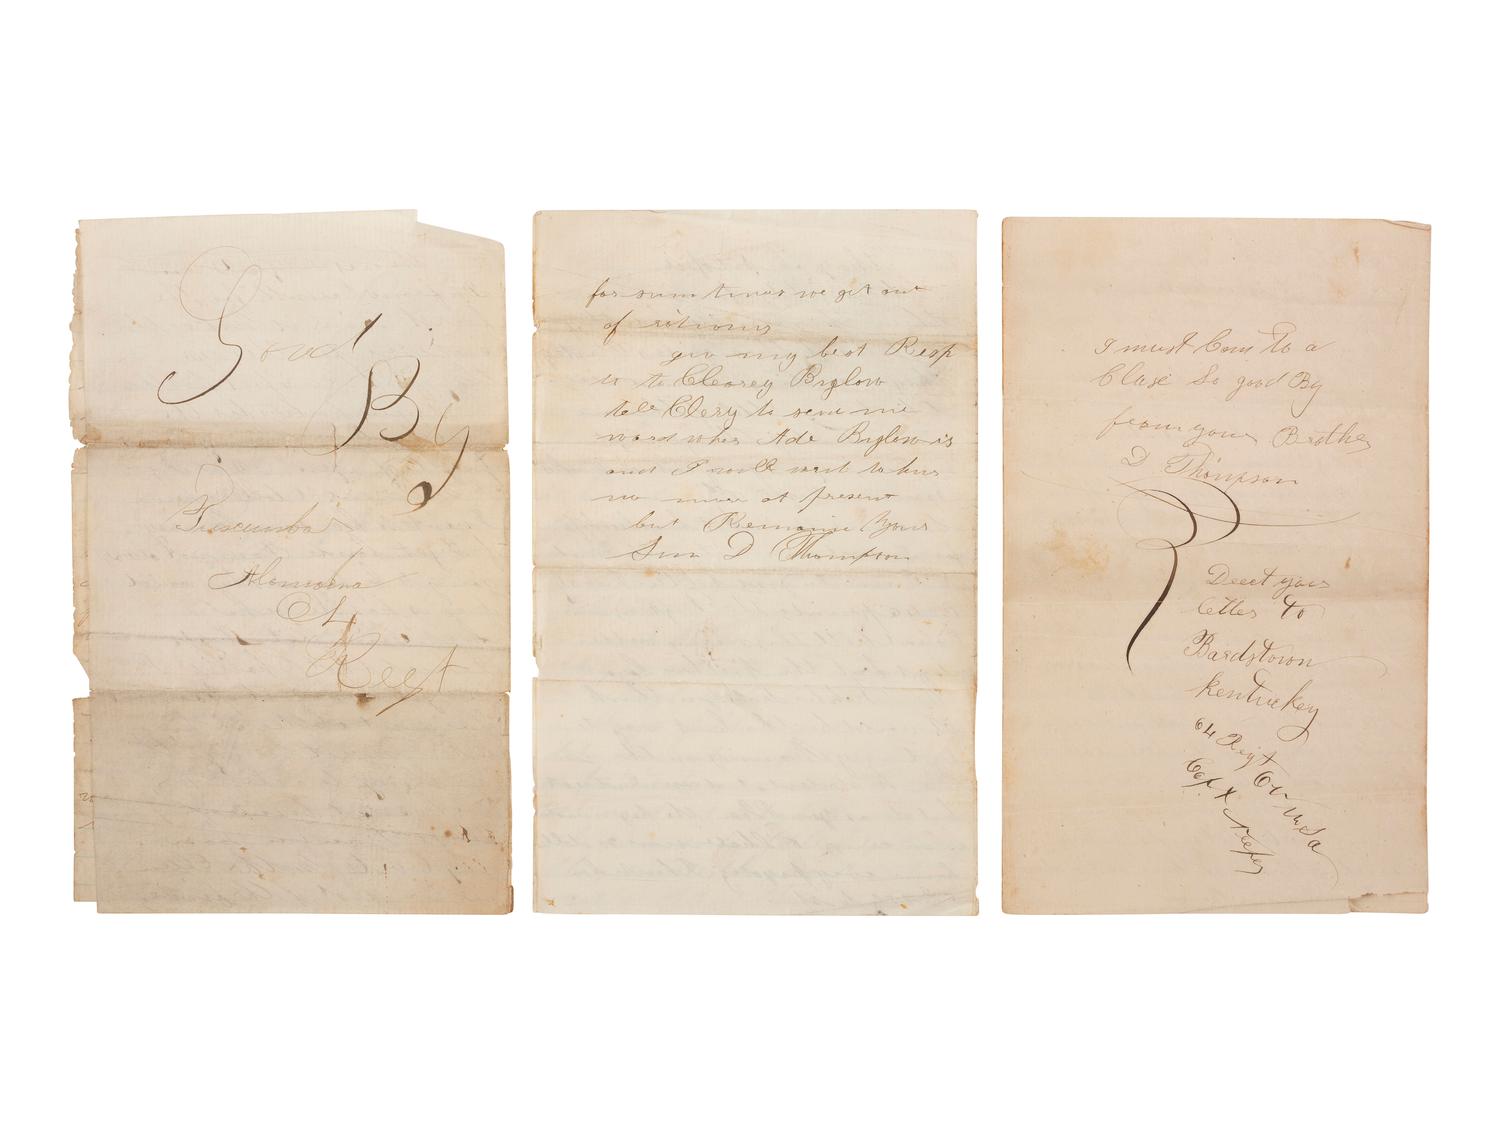 Good
By
Tuscumba
Alamaba
64
Regt
for sum times we get out
of rations
giv my best Resp
to Clearey Biglow
tell Clery to send me
word wher Ade Biglow is
and I will writ to him
no more at present
but Remain Your
Son D Thompson
I must Com To a
Close So good By
from your Brother
D Thompson
Deect your
letter To
Bardstown
Kentuckey
64 Regt O V U S a
Cap X